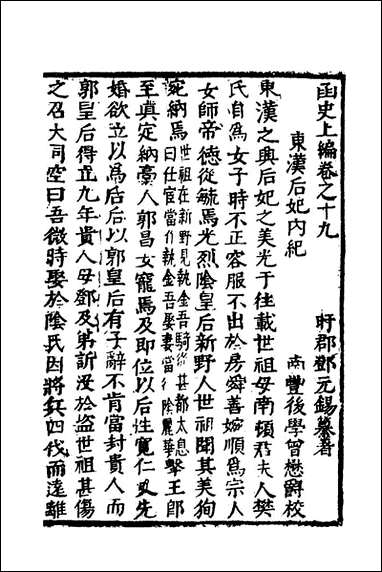 函史上編卷之十九
盱郡鄧元錫纂著
東漢后妃内紀
南豐後學曾懋爵校
東漢之興后妃之美光于往載世祖母南頓君夫人樊
氏自為女子時不正容服不出於房舜善婉順爲宗人
女師帝德從毓焉光烈陰皇后新野人世祖聞其美狥
宛納焉世祖在新野見執金吾騎從甚都太息曰仕宦當作執金吾娶妻當得陰麗華擊王郎
至真定納藁人郭昌女寵焉及即位以后性寛仁又先
婚欲立以爲后后以郭皇后有子辭不肯當封貴人而
郭皇后得立九年貴人母鄧及弟訢没於盗世祖甚傷
之召大司空曰吾微時娶於陰氏因將兵四伐而遠離